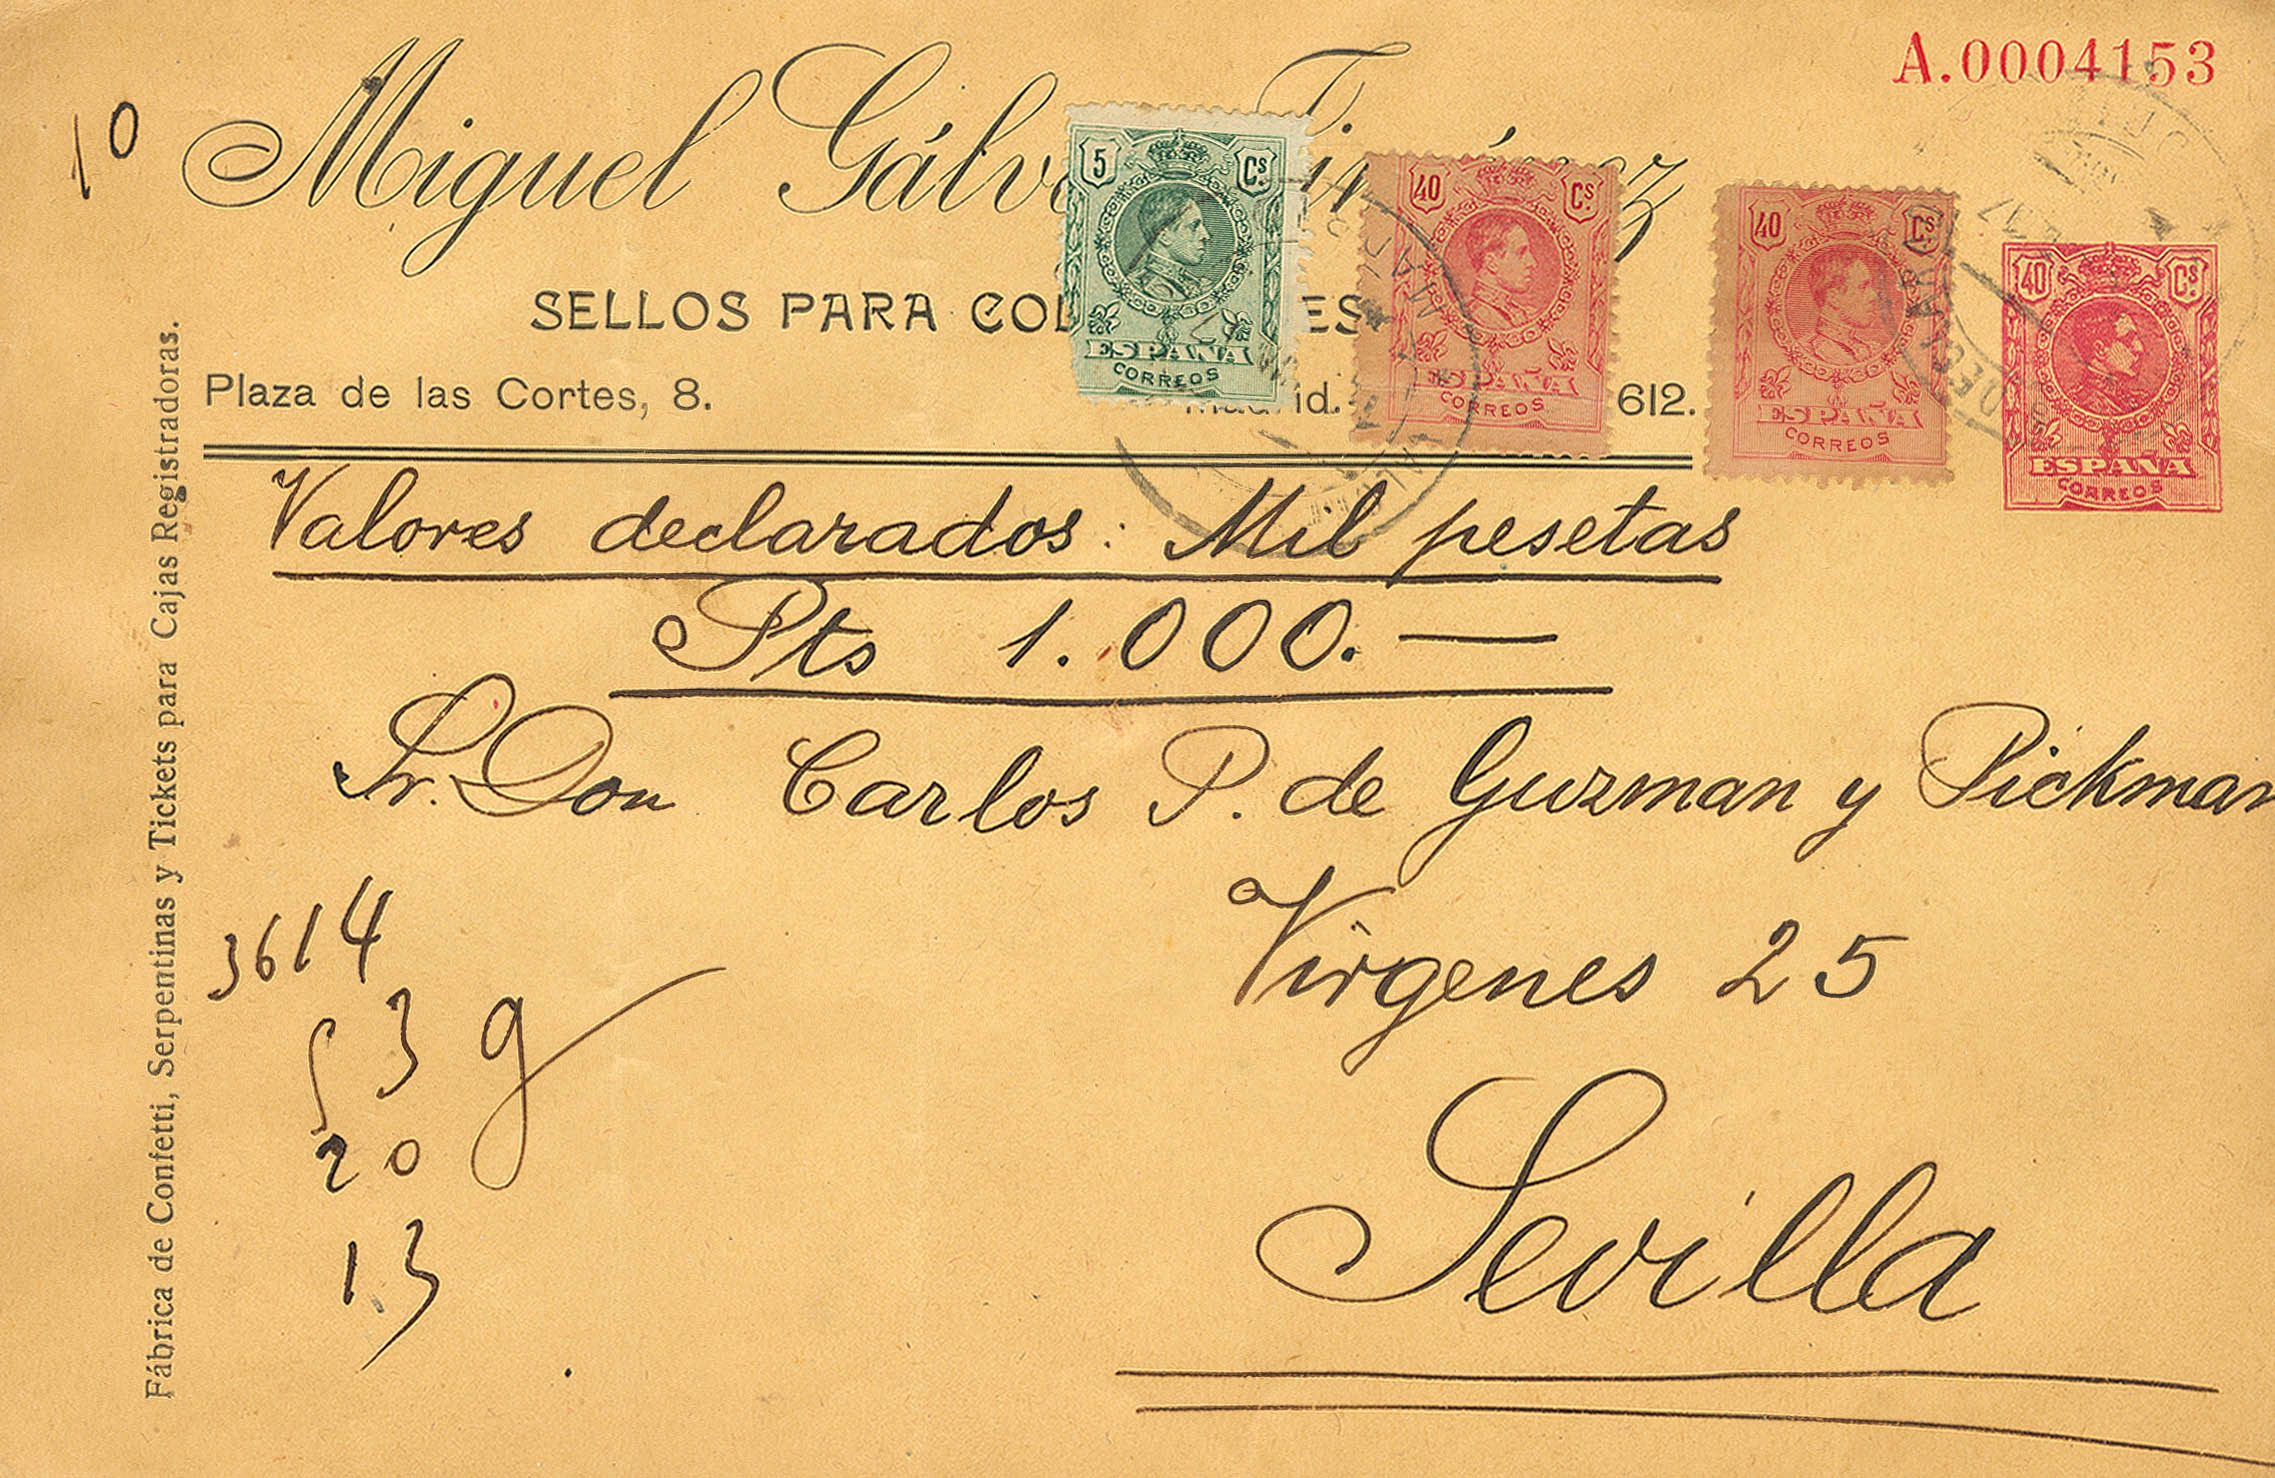 A.0004153
10
Miguel Gálv
SELLOS PARA COL ES
Plaza de las Cortes, 8. Madrid. 612.
5 Cs.
ESPAÑA
CORREOS
40 Cs.
ESPAÑA
CORREOS
40 Cs.
ESPAÑA
CORREOS
40 Cs.
ESPAÑA
CORREOS
Valores declarados: Mil pesetas
Pts 1.000.—
Sr. Don Carlos P. de Guzman y Pickman
Virgenes 25
Sevilla
3614
53 g
20
13
Fábrica de Confetti, Serpentinas y Tickets para Cajas Registradoras.